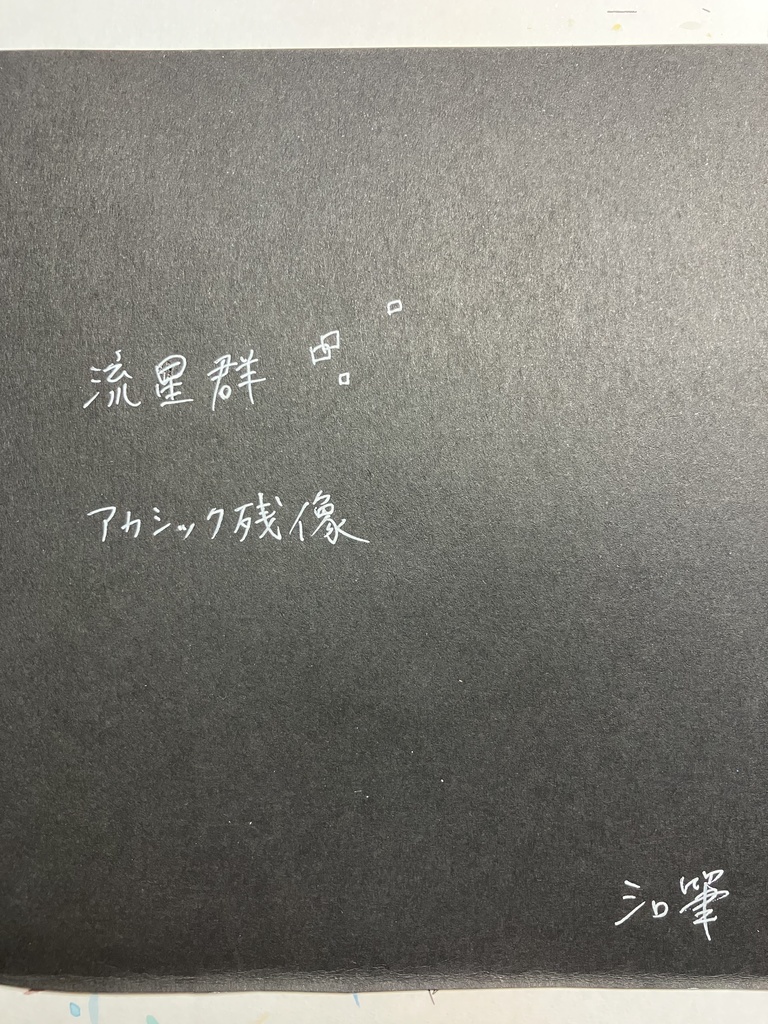 流星群
アカシック残像
シロ筆